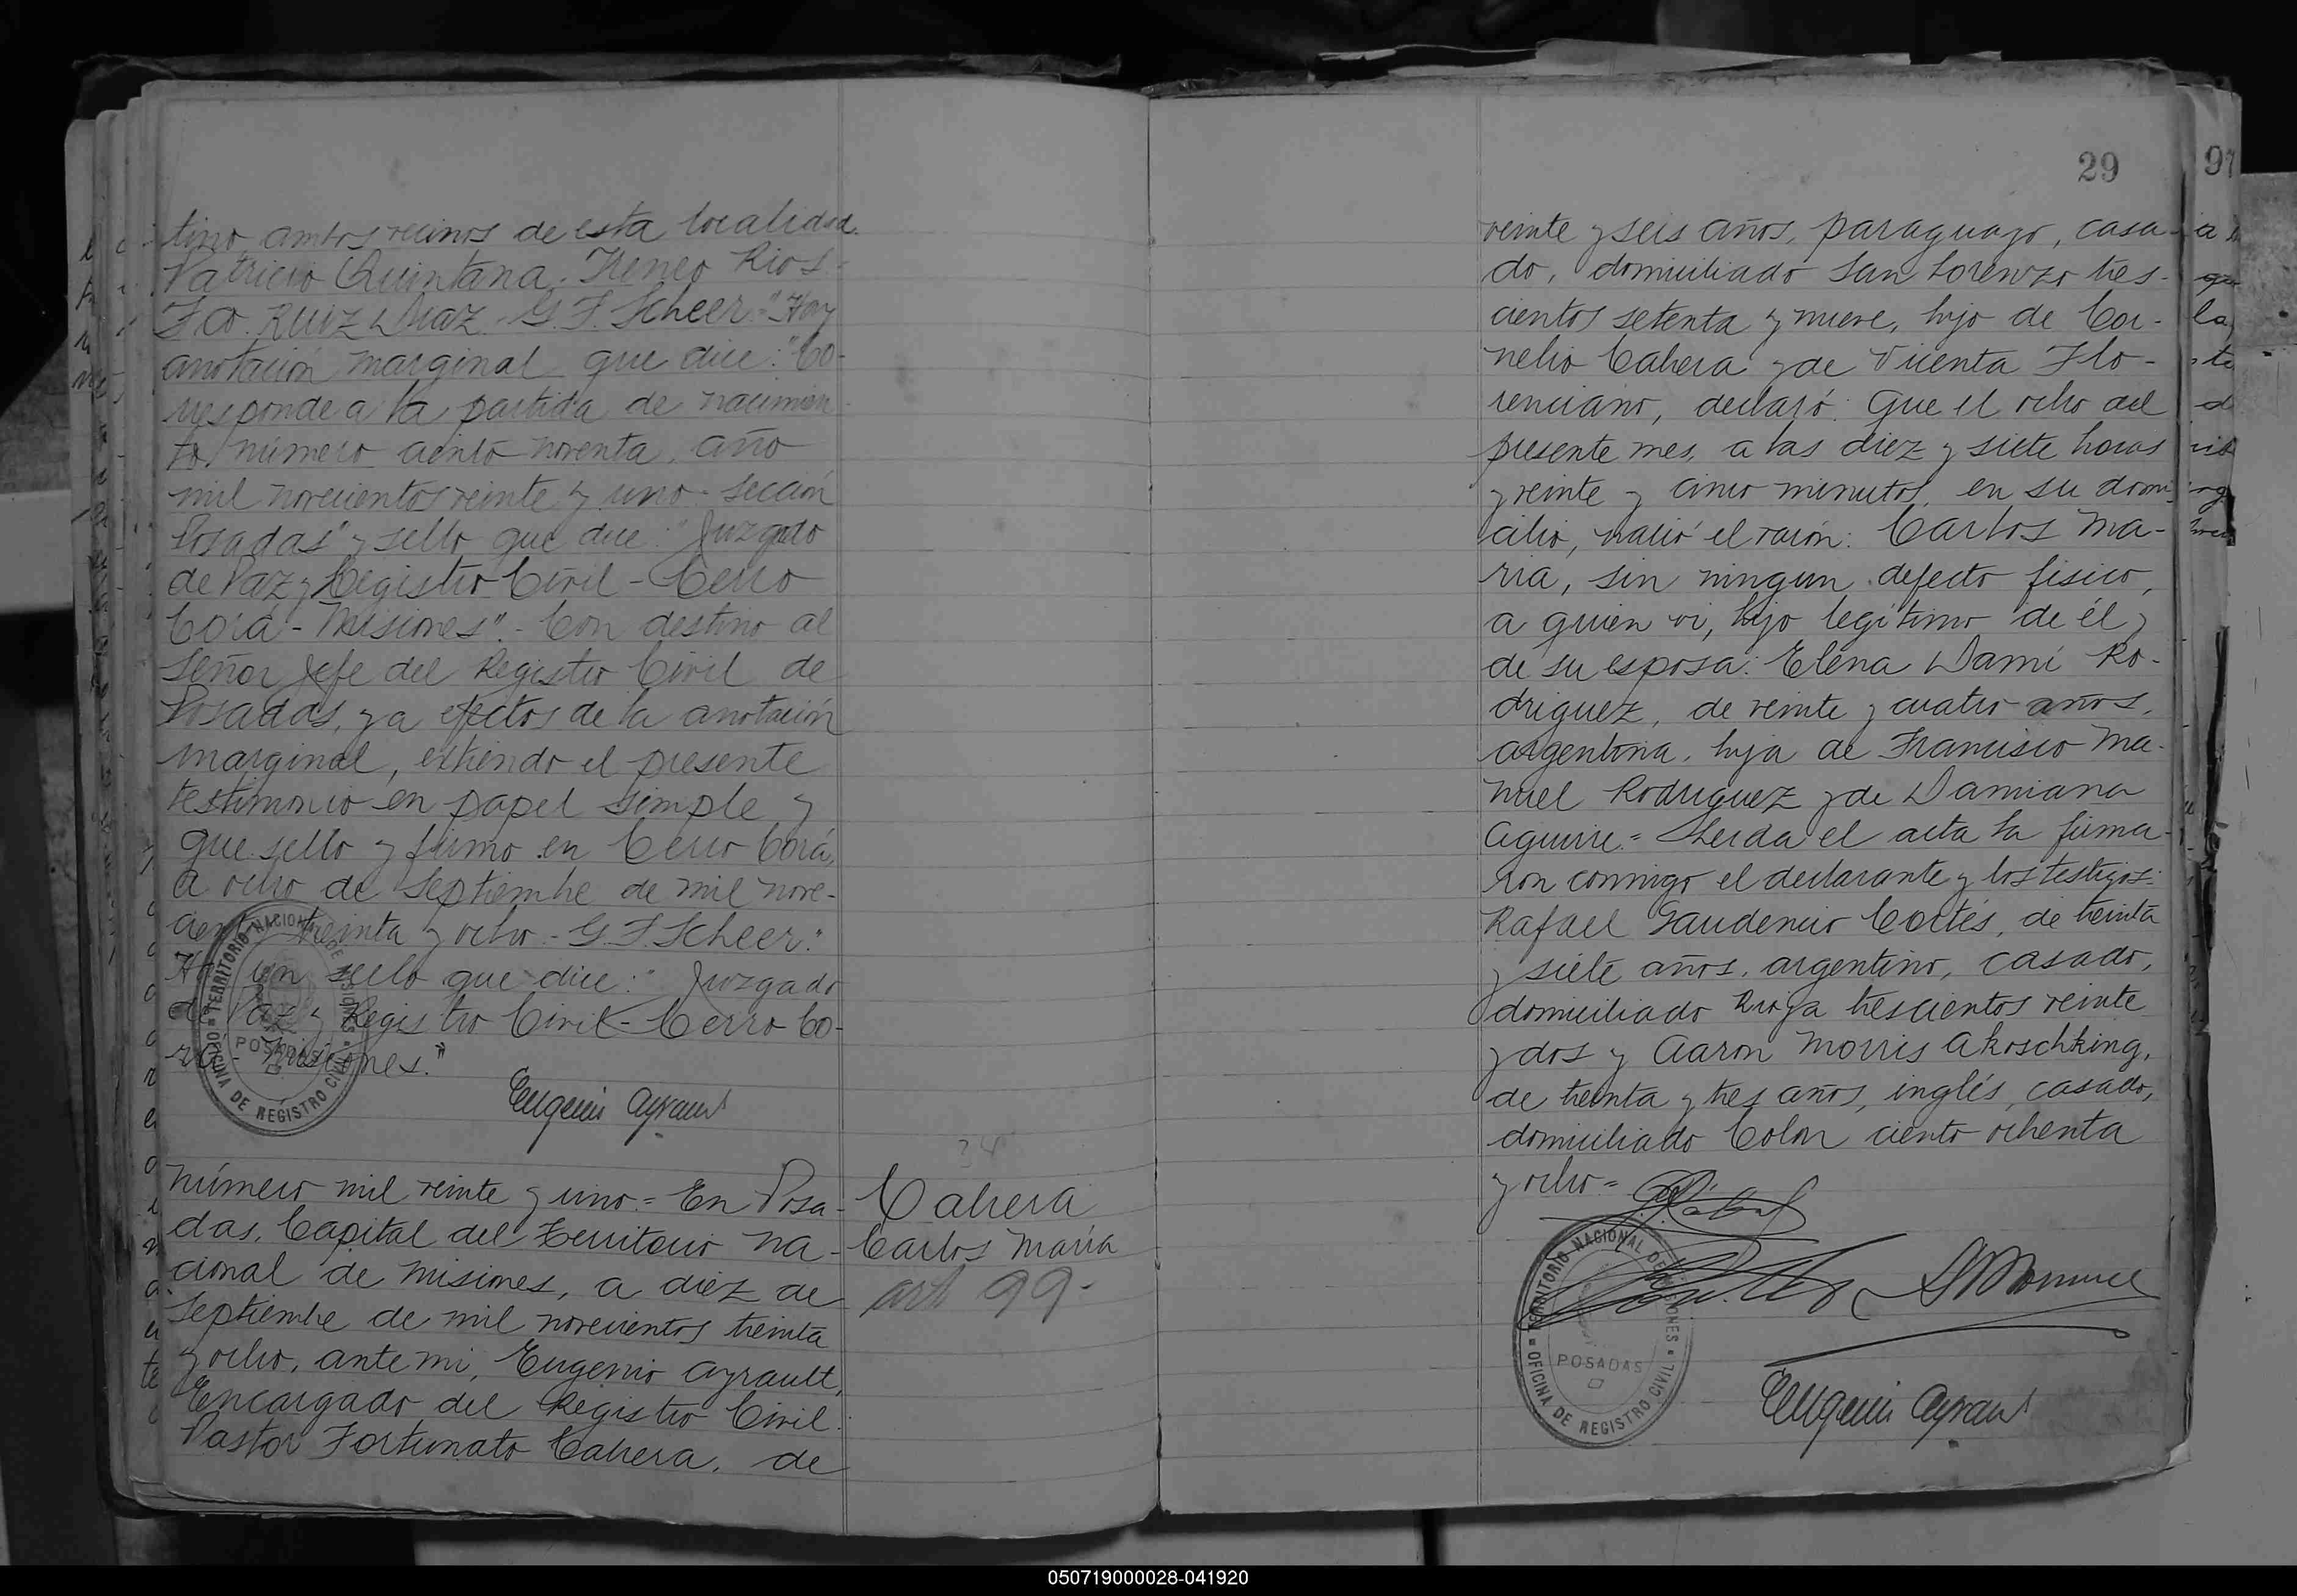 tino ambos vecinos de esta localidad.
Patricio Quintana. Ireneo Rios-
Fco. Ruiz Diaz. G. F. Scheer." Hay
anotación marginal que dice: "Co-
rresponde a la partida de nacimien-
to número ciento noventa, año
mil novecientos veinte y uno. Sección
Posadas" y sello que dice: "Juzgado
de Paz y Registro Civil - Cerro
Corá - Misiones". - Con destino al
Señor Jefe del Registro Civil de
Posadas, y a efectos de la anotación
marginal, extiendo el presente
testimonio en papel simple y
que sello y firmo en Cerro Corá,
a ocho de Septiembre de mil nove-
cientos treinta y ocho. - G. F. Scheer."
Hay un sello que dice: "Juzgado
de Paz y Registro Civil - Cerro Co-
rá - Misiones."
Eugenio Ayrault
TERRITORIO NACIONAL DE MISIONES
POSADAS
OFICINA DE REGISTRO CIVIL
34
Número mil veinte y uno = En Posa-
das, Capital del Territorio Na-
cional de Misiones, a diez de
Septiembre de mil novecientos treinta
y ocho, ante mi, Eugenio Ayrault,
Encargado del Registro Civil.
Pastor Fortunato Cabrera, de
Cabrera
Carlos María
art 99-
29
veinte y seis años, paraguayo, casa-
do, domiciliado San Lorenzo tres-
cientos setenta y nueve, hijo de Cor-
nelio Cabrera y de Vicenta Flo-
renciano, declaró: Que el ocho del
presente mes, a las diez y siete horas
y veinte y cinco minutos, en su domi-
cilio, nació el varón: Carlos Ma-
ria, sin ningun defecto fisico,
a quien vi, hijo legítimo de él y
de su esposa: Elena Dami Ro-
driguez, de veinte y cuatro años,
argentina, hija de Francisco Ma-
nuel Rodriguez y de Damiana
Aguirre = Leida el acta la firma-
ron conmigo el declarante y los testigos:
Rafael Gaudencio Cortés, de treinta
y siete años, argentino, casado,
domiciliado Rioja trescientos veinte
y dos y Aaron Morris Akoschking,
de treinta y tres años, inglés, casado,
domiciliado Colon ciento ochenta
y ocho =
TERRITORIO NACIONAL DE MISIONES
POSADAS
OFICINA DE REGISTRO CIVIL
Eugenio Ayrault
97
050719000028-041920